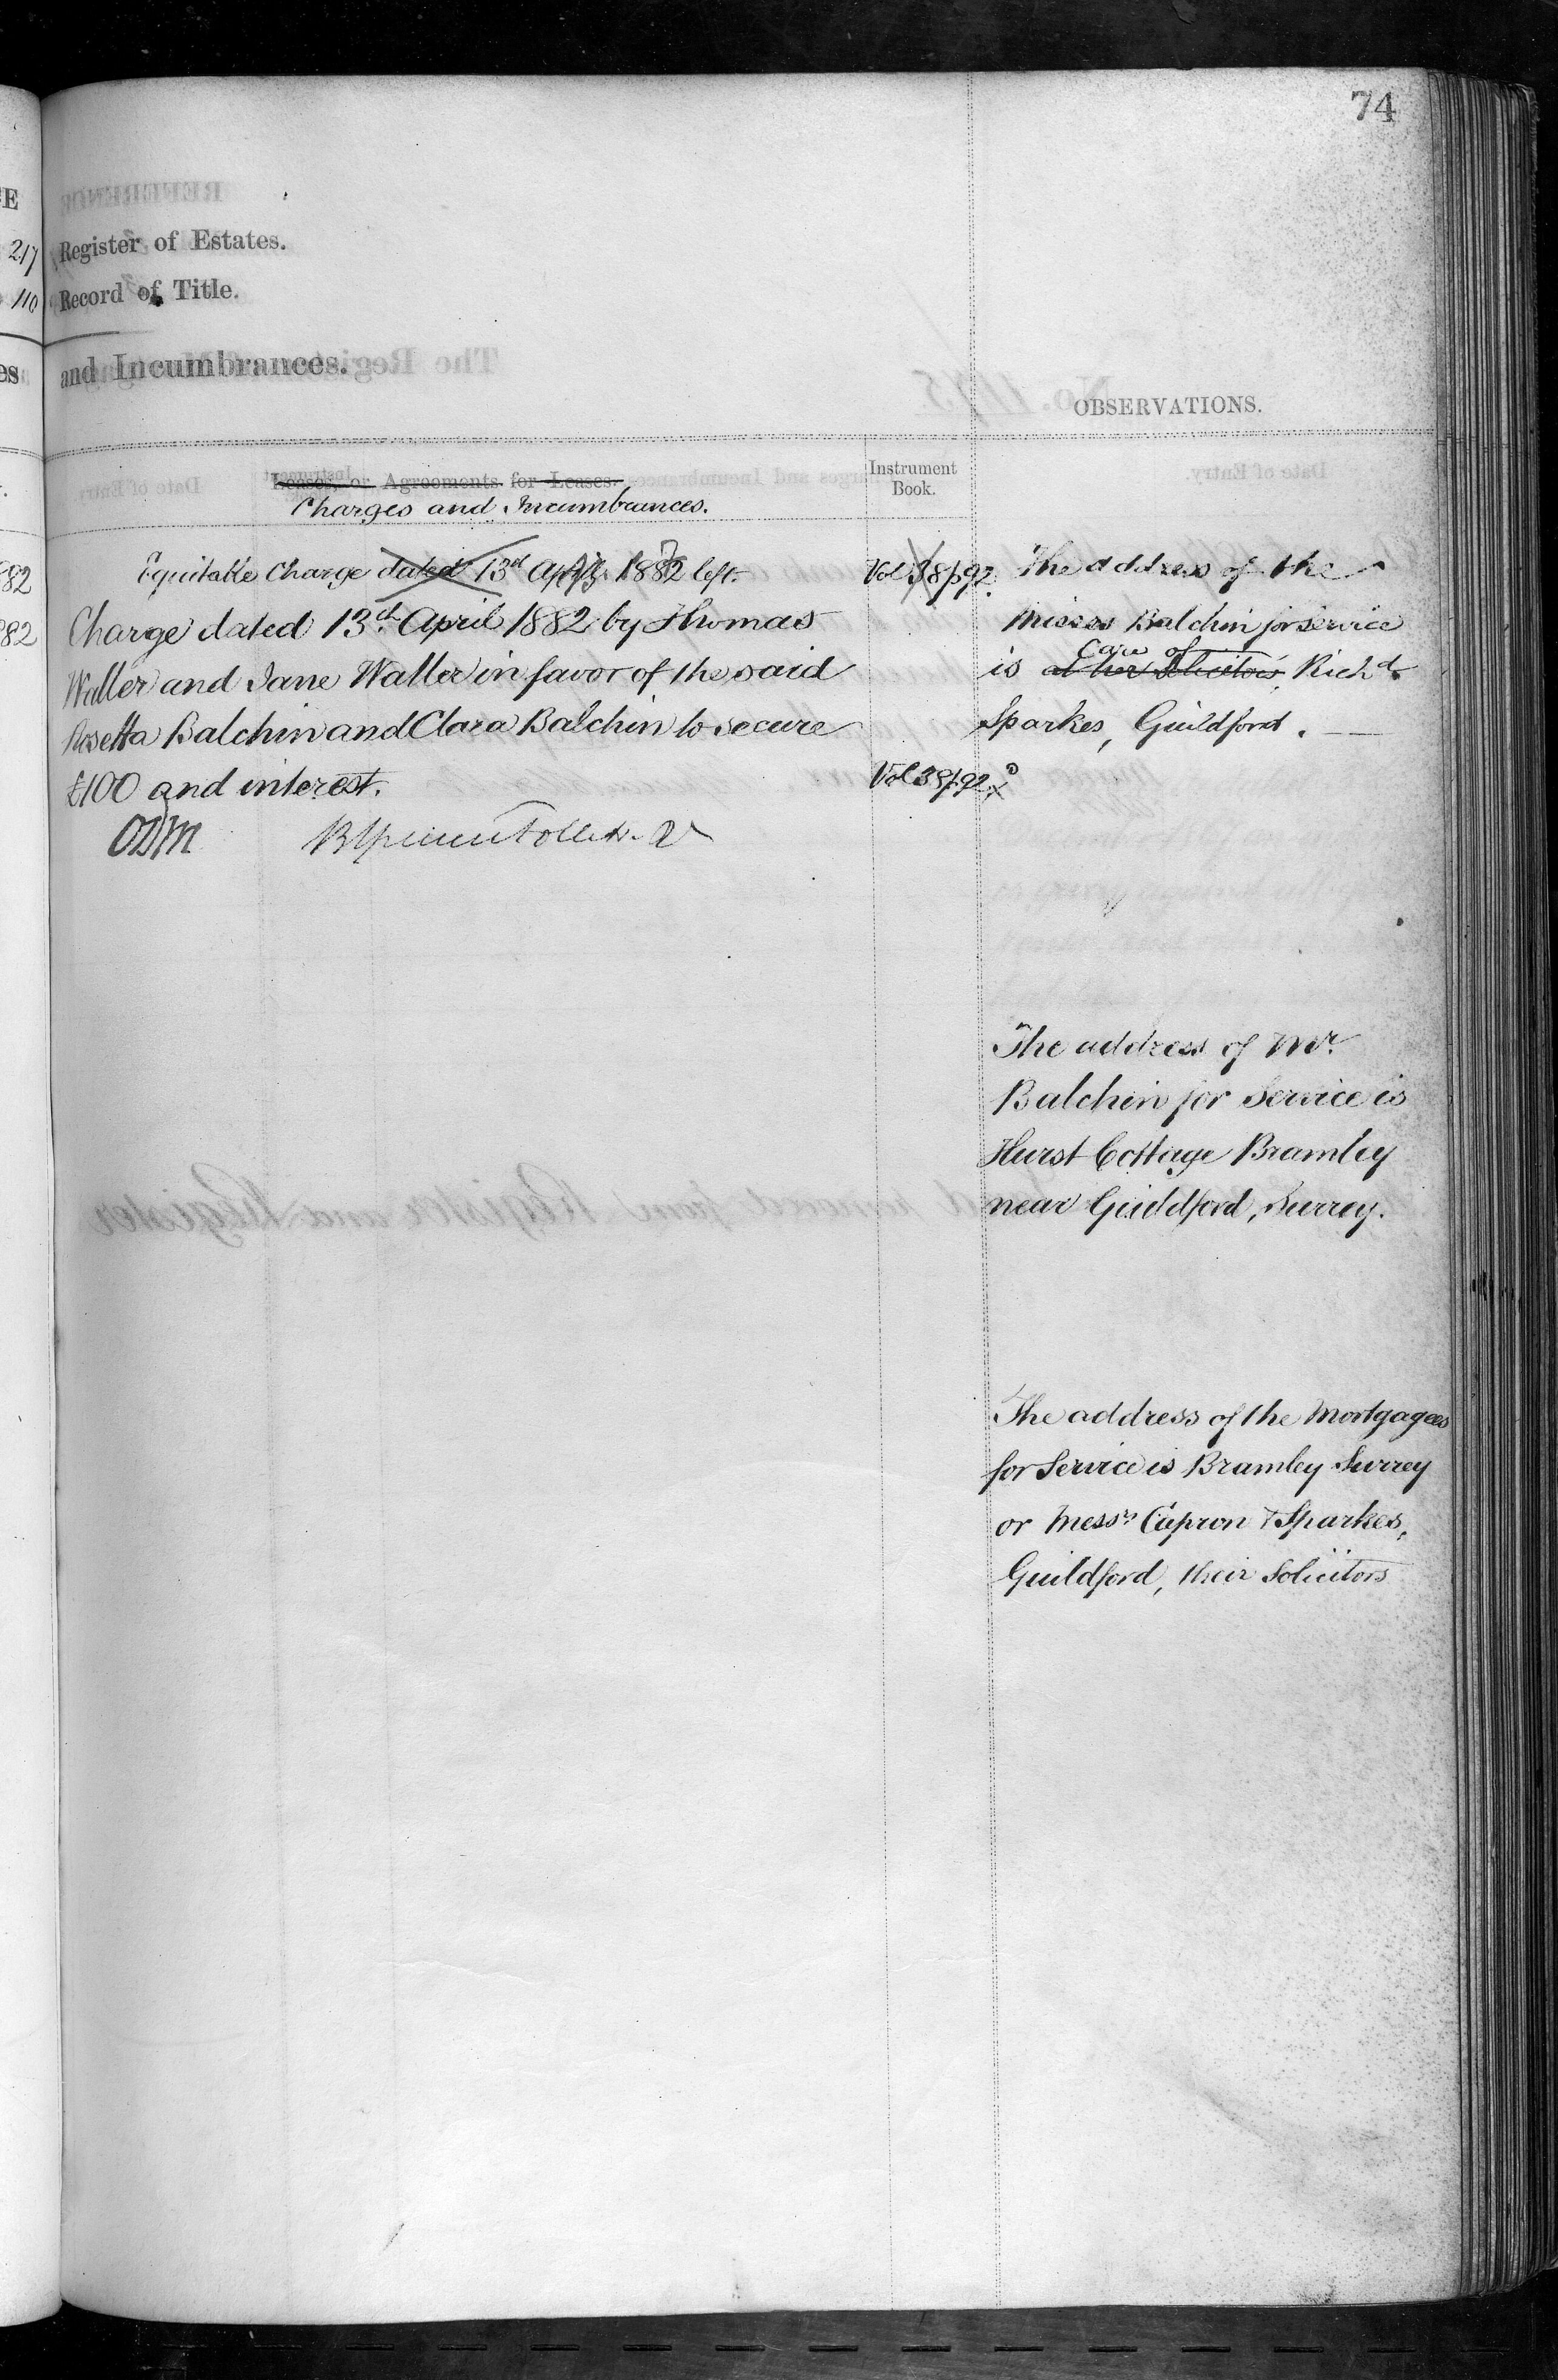 74
E
217
110
es
Register of Estates.
Record of Title.
and Incumbrances.
OBSERVATIONS.
Leases, or Agreements for Leases.
Charges and Incumbrances.
Instrument
Book.
82
82
Equitable Charge dated 13th April 1882 left.
Charge dated 13th April 1882 by Thomas
Waller and Jane Waller in favor of the said
Rosetta Balchin and Clara Balchin to secure
£100 and interest.
ODM
Vol 38 p 92
Vol 38 p 92
The address of the
Misses Balchin for service
is at her Solicitors care of Richd
Sparkes, Guildford.
The address of Mr
Balchin for Service is
Hurst Cottage Bramley
near Guildford, Surrey.
The address of the Mortgagees
for Service is Bramley Surrey
or Messrs Capron & Sparkes,
Guildford, their Solicitors